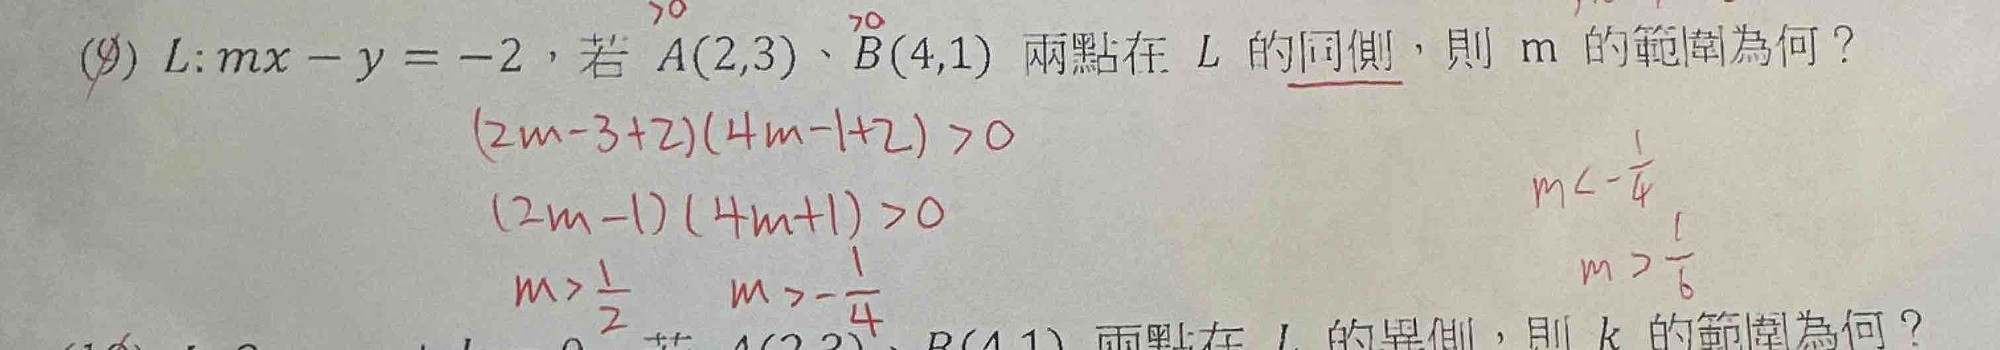 >0 >0
(9) L: mx − y = −2，若 A(2,3)、B(4,1) 兩點在 L 的同側，則 m 的範圍為何？
(2m-3+2)(4m-1+2) >0
m<-1/4
(2m-1)(4m+1)>0
m>1/6
m>1/2 m>-1/4
A(2,3)、B(4,1) 兩點在 L 的異側，則 k 的範圍為何？